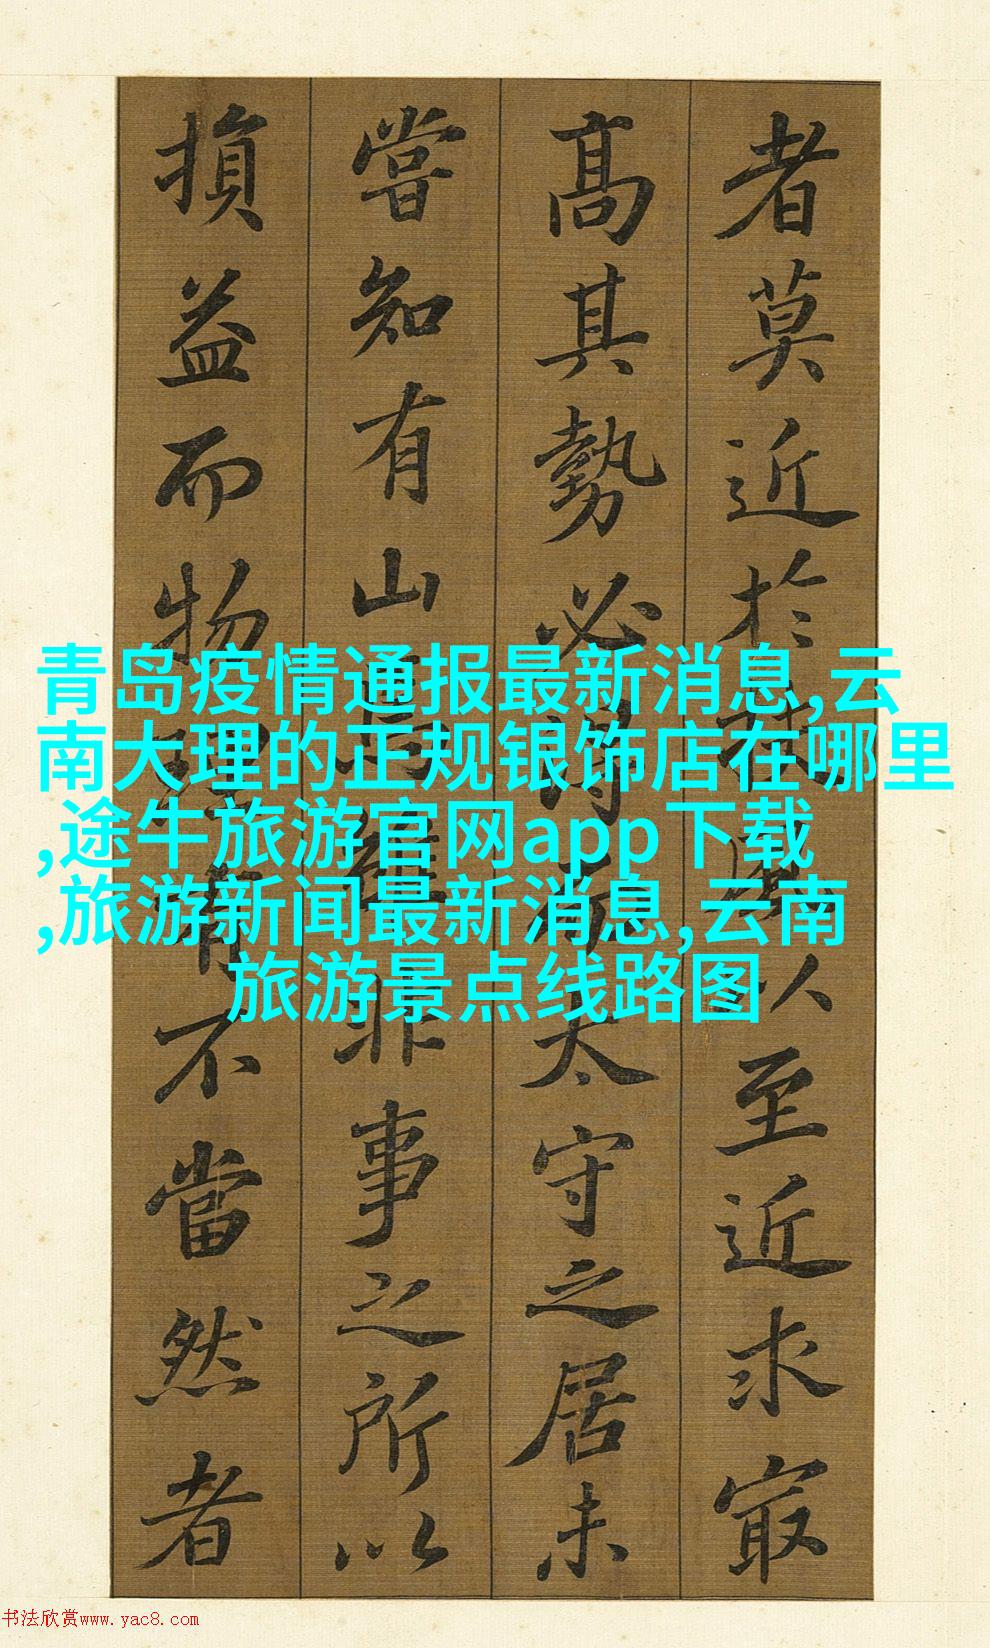 者莫近於扶風以至近求最
高其勢必得而太守之居未
嘗知有山焉雖非事之所以
損益而物理有不當然者
青岛疫情通报最新消息,云
南大理的正规银饰店在哪里
,途牛旅游官网app下载
,旅游新闻最新消息,云南
旅游景点线路图
书法欣赏www.yac8.com